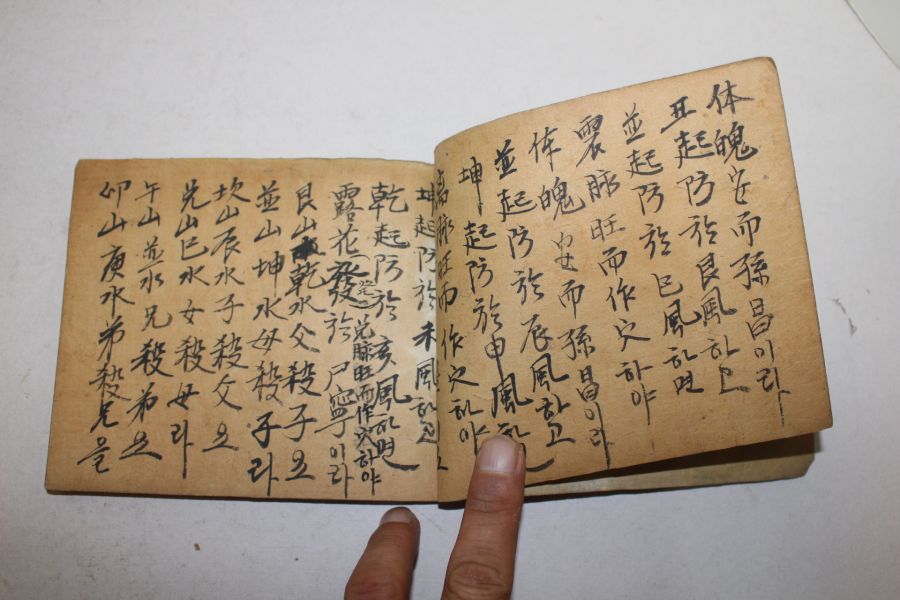 体魄安而孫昌이라
丑起防於艮風하고
並起防於巳風하면
震脉旺而作穴하야
体魄安而孫昌이라
並起防於辰風하고
坤起防於申風
脉旺而作穴하야
坤起防於未風하고
乾起防於亥風하면
兌脉旺而作穴하야
露花發於尸寧이라
艮山乾水父殺子요
並山坤水母殺子라
坎山辰水子殺父요
兌山巳水女殺母라
午山並水兄殺弟요
卯山庚水弟殺兄을